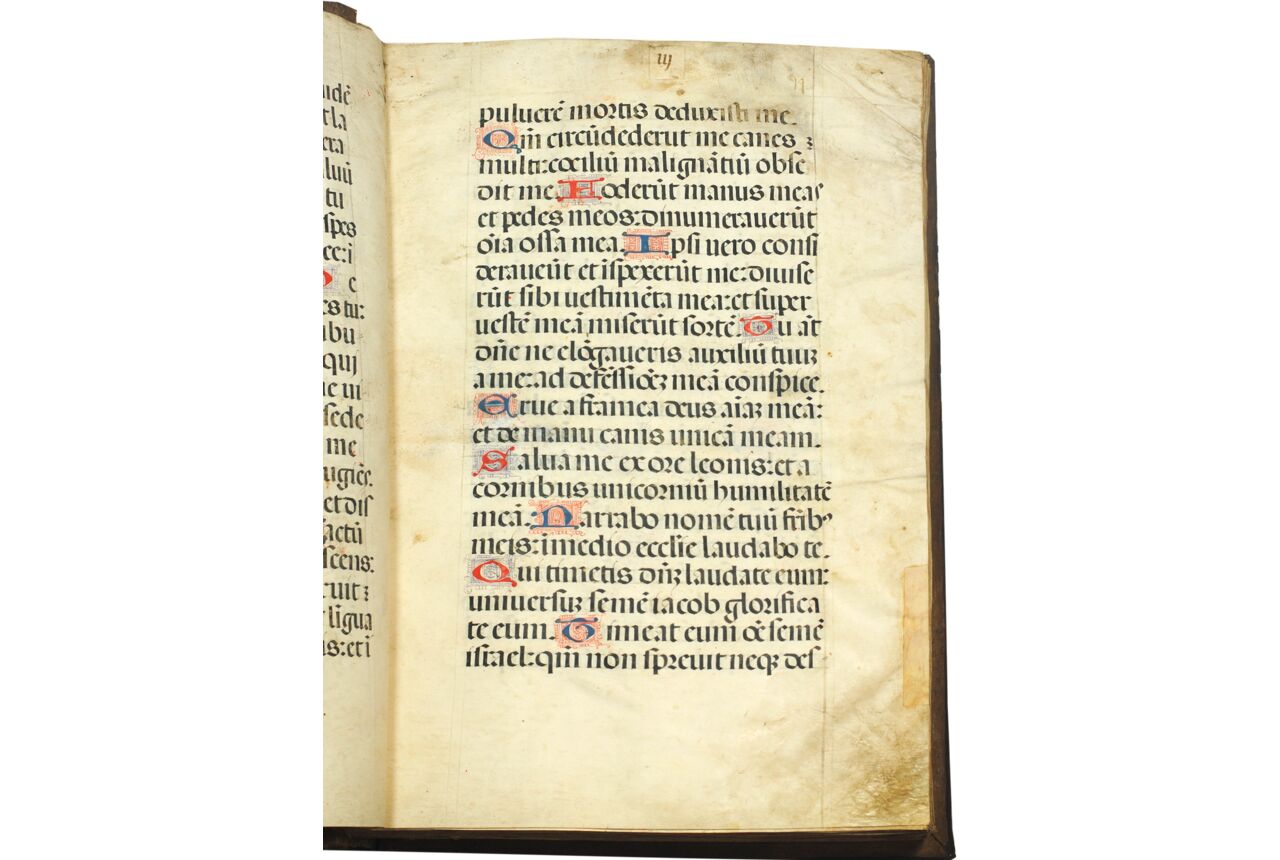 ndē
t la
era
luū
tu
spes
ee: i
e
es tu:
ibu
qui
ne ui
sede
me
ugiēs.
et dis
actū
scens:
ruit ⁊
līgua
is: et i
iij
puluerē mortis deduxisti me.
Qm̄ circūdederūt me canes
multi: cōciliū malignātiū obse
dit me. Foderūt manus meas
et pedes meos: dinumerauerūt
oīa ossa mea. Ipsi uero consi
derauerūt et īspexerūt me: diuise
rūt sibi uestimēta mea: et super
uestē meā miserūt sortē. Tu aūt
dn̄e ne elōgaueris auxiliū tuuꝫ
a me: ad defēssionēꝫ meā conspice.
Erue a framea deus aīaꝫ meā:
et de manu canis unicā meam.
Salua me ex ore leonis: et a
cornibus unicorniū humilitatē
meā. Narrabo nomē tuū frībꝰ
meis: ī medio ecclīe laudabo te.
Qui timetis dn̄ꝫ laudate eum:
uniuersuꝫ semē iacob glorifica
te eum. Timeat eum oē semē
israel: qm̄ non spreuit neqꝫ des